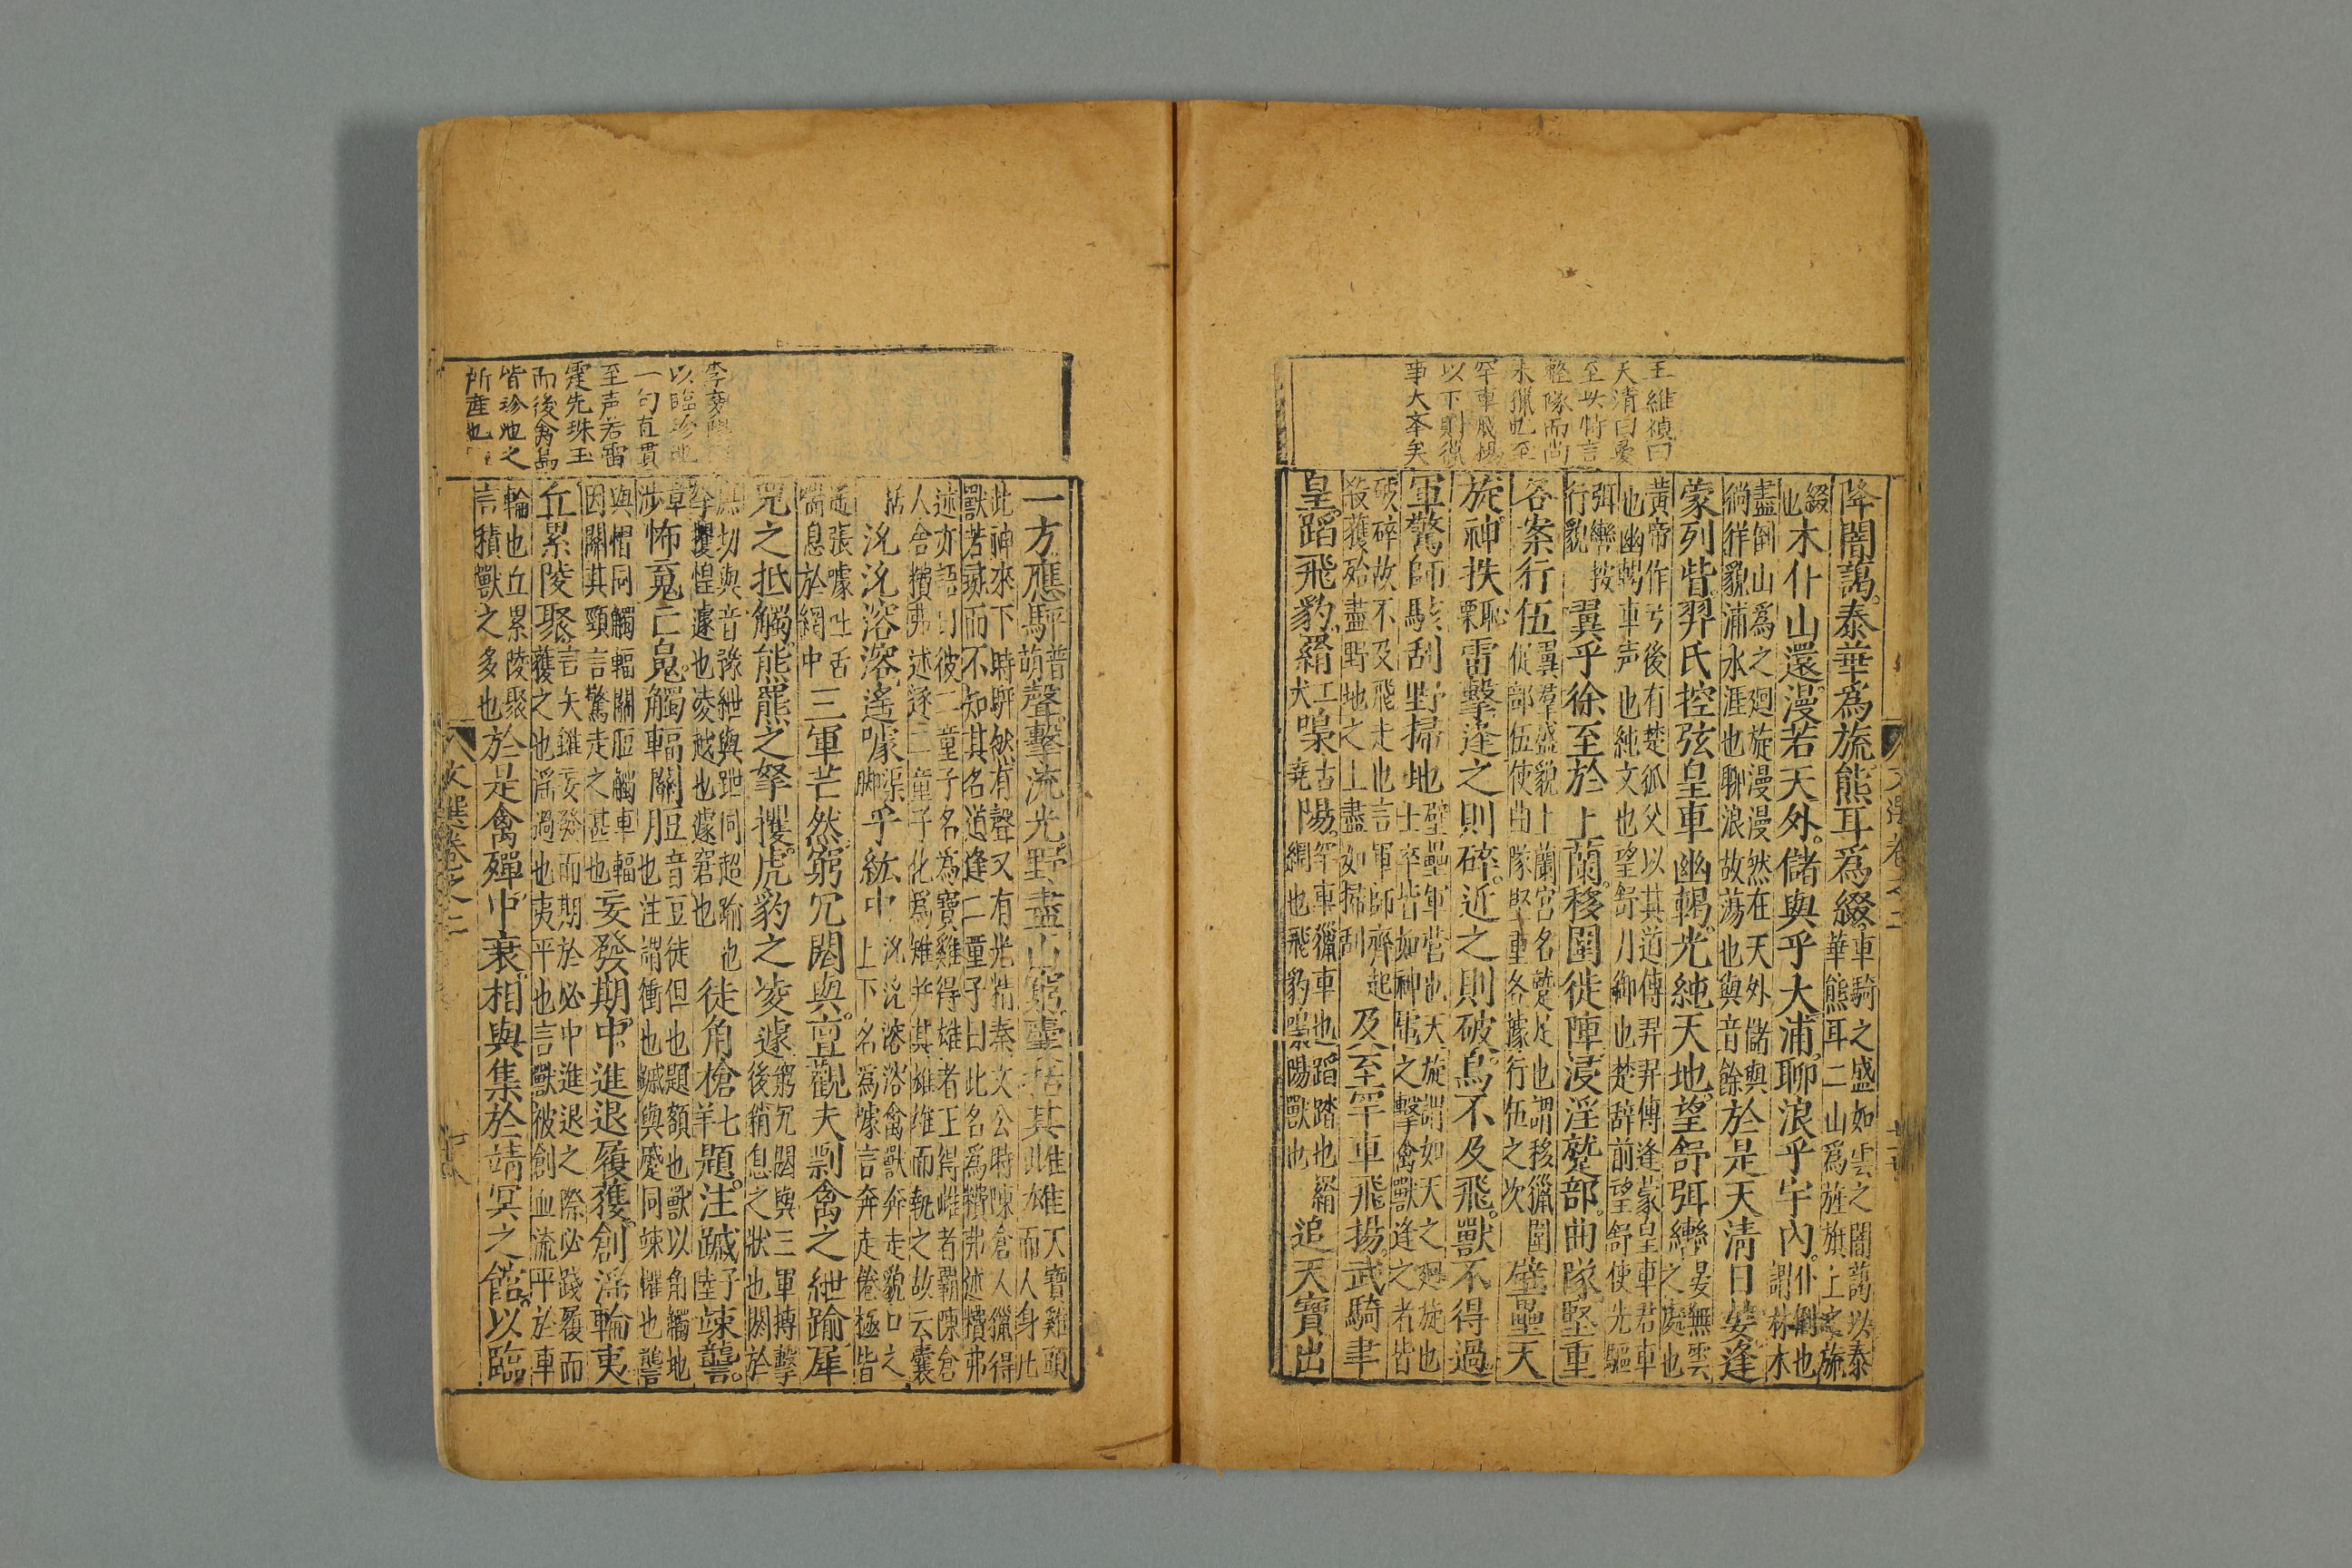 王維禎曰
天清日晏
至此特言
整隊而尚
未獵也至
罕車飛揚
以下則獵
事大卒矣
降闇藹泰華為旒熊耳為綴車騎之盛如雲之闇藹以泰
華熊耳二山為旌旗上之旒
綴
也木仆山還漫若天外儲與乎大浦聊浪乎宇內仆倒也
謂林木
盡倒山為之廻旋漫漫然在天外儲與
徜徉貌浦水涯也聊浪放蕩也與音餘於是天清日晏逢
蒙列眥羿氏控弦皇車幽輵光純天地望舒弭轡晏無雲
之處也
黃帝作弓後有楚狐父以其道傳羿羿傳逢蒙皇車君車
也幽輵車声也純文也望舒月御也楚辞前望舒使先驅
弭轡按
行貌翼乎徐至於上蘭移圍徙陣浸淫蹵部曲隊堅重
各案行伍翼羣盛貌上蘭宮名蹵促也謂移獵圍
促部伍使曲隊堅重各據行伍之次壁壘天
旋神抶恥
栗雷擊逢之則碎近之則破鳥不及飛獸不得過
軍驚師駭刮野掃地壁壘軍營也天旋謂如天之廻旋也
士卒皆如神雷之擊禽獸逢之者皆
破碎故不及飛走也言軍師齊起
殺獲殆盡野地之上盡如掃刮及至罕車飛揚武騎聿
皇蹈飛豹絹工
犬噪古
尭陽罕車獵車也蹈踏也絹
網也飛豹噪陽獸也追天寶出
文選卷之二
一方應駍普
萌聲擊流光野盡山窮囊括其雌雄天寶雞頭
而人身此
此神來下時駍然有聲又有光精秦文公時陳倉人獵得
獸若彘而不知其名道逢二童子曰此名為𥜥弗述𥜥弗
述亦語曰彼二童子名為寶雞得雄者王得雌者覇陳倉
人舍𥜥弗述逐二童子化為雉并其雄雌而執之故云囊
括沇沇溶溶遙噱渠
脚乎紘中沇沇溶溶禽獸奔走貌口之
上下名為噱言奔走倦極皆
遙張噱吐舌
喘息於網中三軍芒然窮冘閼與亶觀夫剽禽之紲踰犀
兕之抵觸熊羆之拏攫虎豹之凌遽窮冘閼與三軍搏擊
後稍息之狀也閼於
葛切與音豫紲與跇同超踰也
拏攫惶遽也凌越也遽窘也徒角槍七
羊題注蹴子
陸竦讋
章
涉怖䰟亡䰟觸輻關脰音豆徒但也題額也獸以角觸地
也注謂衝也蹴與蹙同竦懼也讋
與慴同觸輻關脰觸車輻
因關其頸言驚走之甚也妄發期中進退履獲創淫輪夷
丘累陵聚言矢雖妄發而期於必中進退之際必踐履而
獲之也淫過也夷平也言獸被創血流平於車
輪也丘累陵聚
言積獸之多也於是禽殫中衰相與集於靖冥之館以臨
李
以臨珍池
一句直貫
至声若雷
霆先珠玉
而後禽鳥
皆珍池之
所産也
文選卷之二